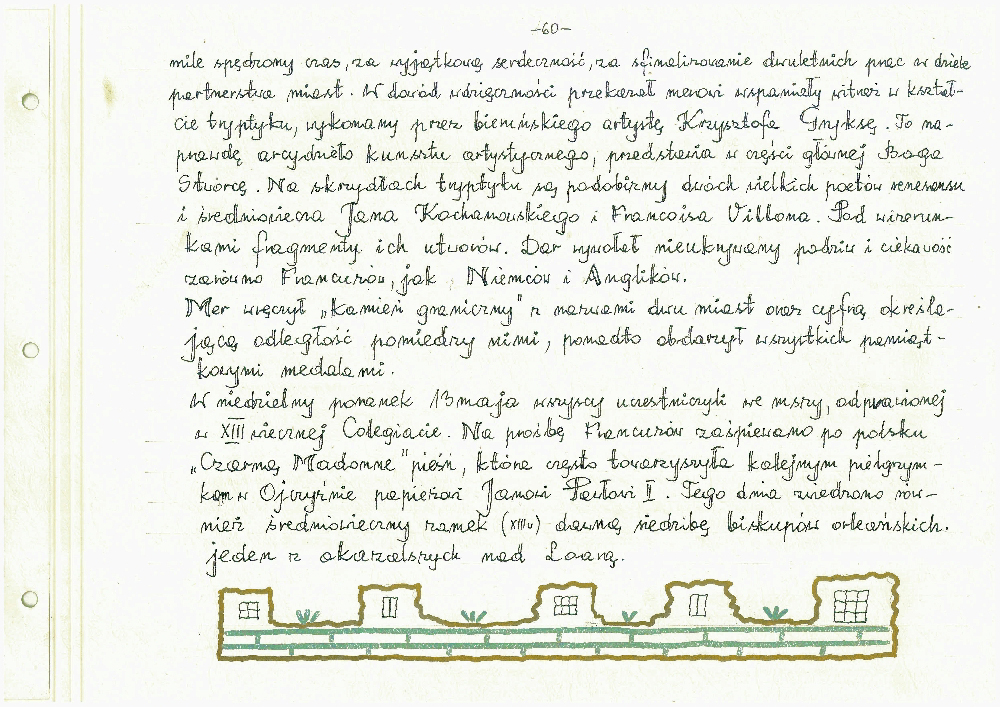 -60-
mile spędzony czas, za wyjątkową serdeczność, za sfinalizowanie dwuletnich prac w dziele
partnerstwa miast. W dowód wdzięczności przekazał merowi wspaniały witraż w kształ-
cie tryptyku, wykonany przez bieruńskiego artystę Krzysztofa Gryksę. To na-
prawdę arcydzieło kunsztu artystycznego, przedstawia w części głównej Boga
Stwórcę. Na skrzydłach tryptyku są podobizny dwóch wielkich poetów renesansu
i średniowiecza Jana Kochanowskiego i Francoisa Villona. Pod wizerun-
kami fragmenty ich utworów. Dar wywołał nieukrywany podziw i ciekawość
zarówno Francuzów, jak Niemców i Anglików.
Mer wręczył „kamień graniczny" z nazwami dwu miast oraz cyfrą określa-
jącą odległość pomiędzy nimi, ponadto obdarzył wszystkich pamiąt-
kowymi medalami.
W niedzielny poranek 13 maja wszyscy uczestniczyli we mszy, odprawionej
w XIII wiecznej Colegiacie. Na prośbę Francuzów zaśpiewano po polsku
„Czarną Madonnę" pieśń, która często towarzyszyła kolejnym pielgrzym-
kom w Ojczyźnie papieżowi Janowi Pawłowi II. Tego dnia zwiedzono rów-
nież średniowieczny zamek (XIIIw) dawną siedzibę biskupów orleańskich.
jeden z okazalszych nad Loarą.